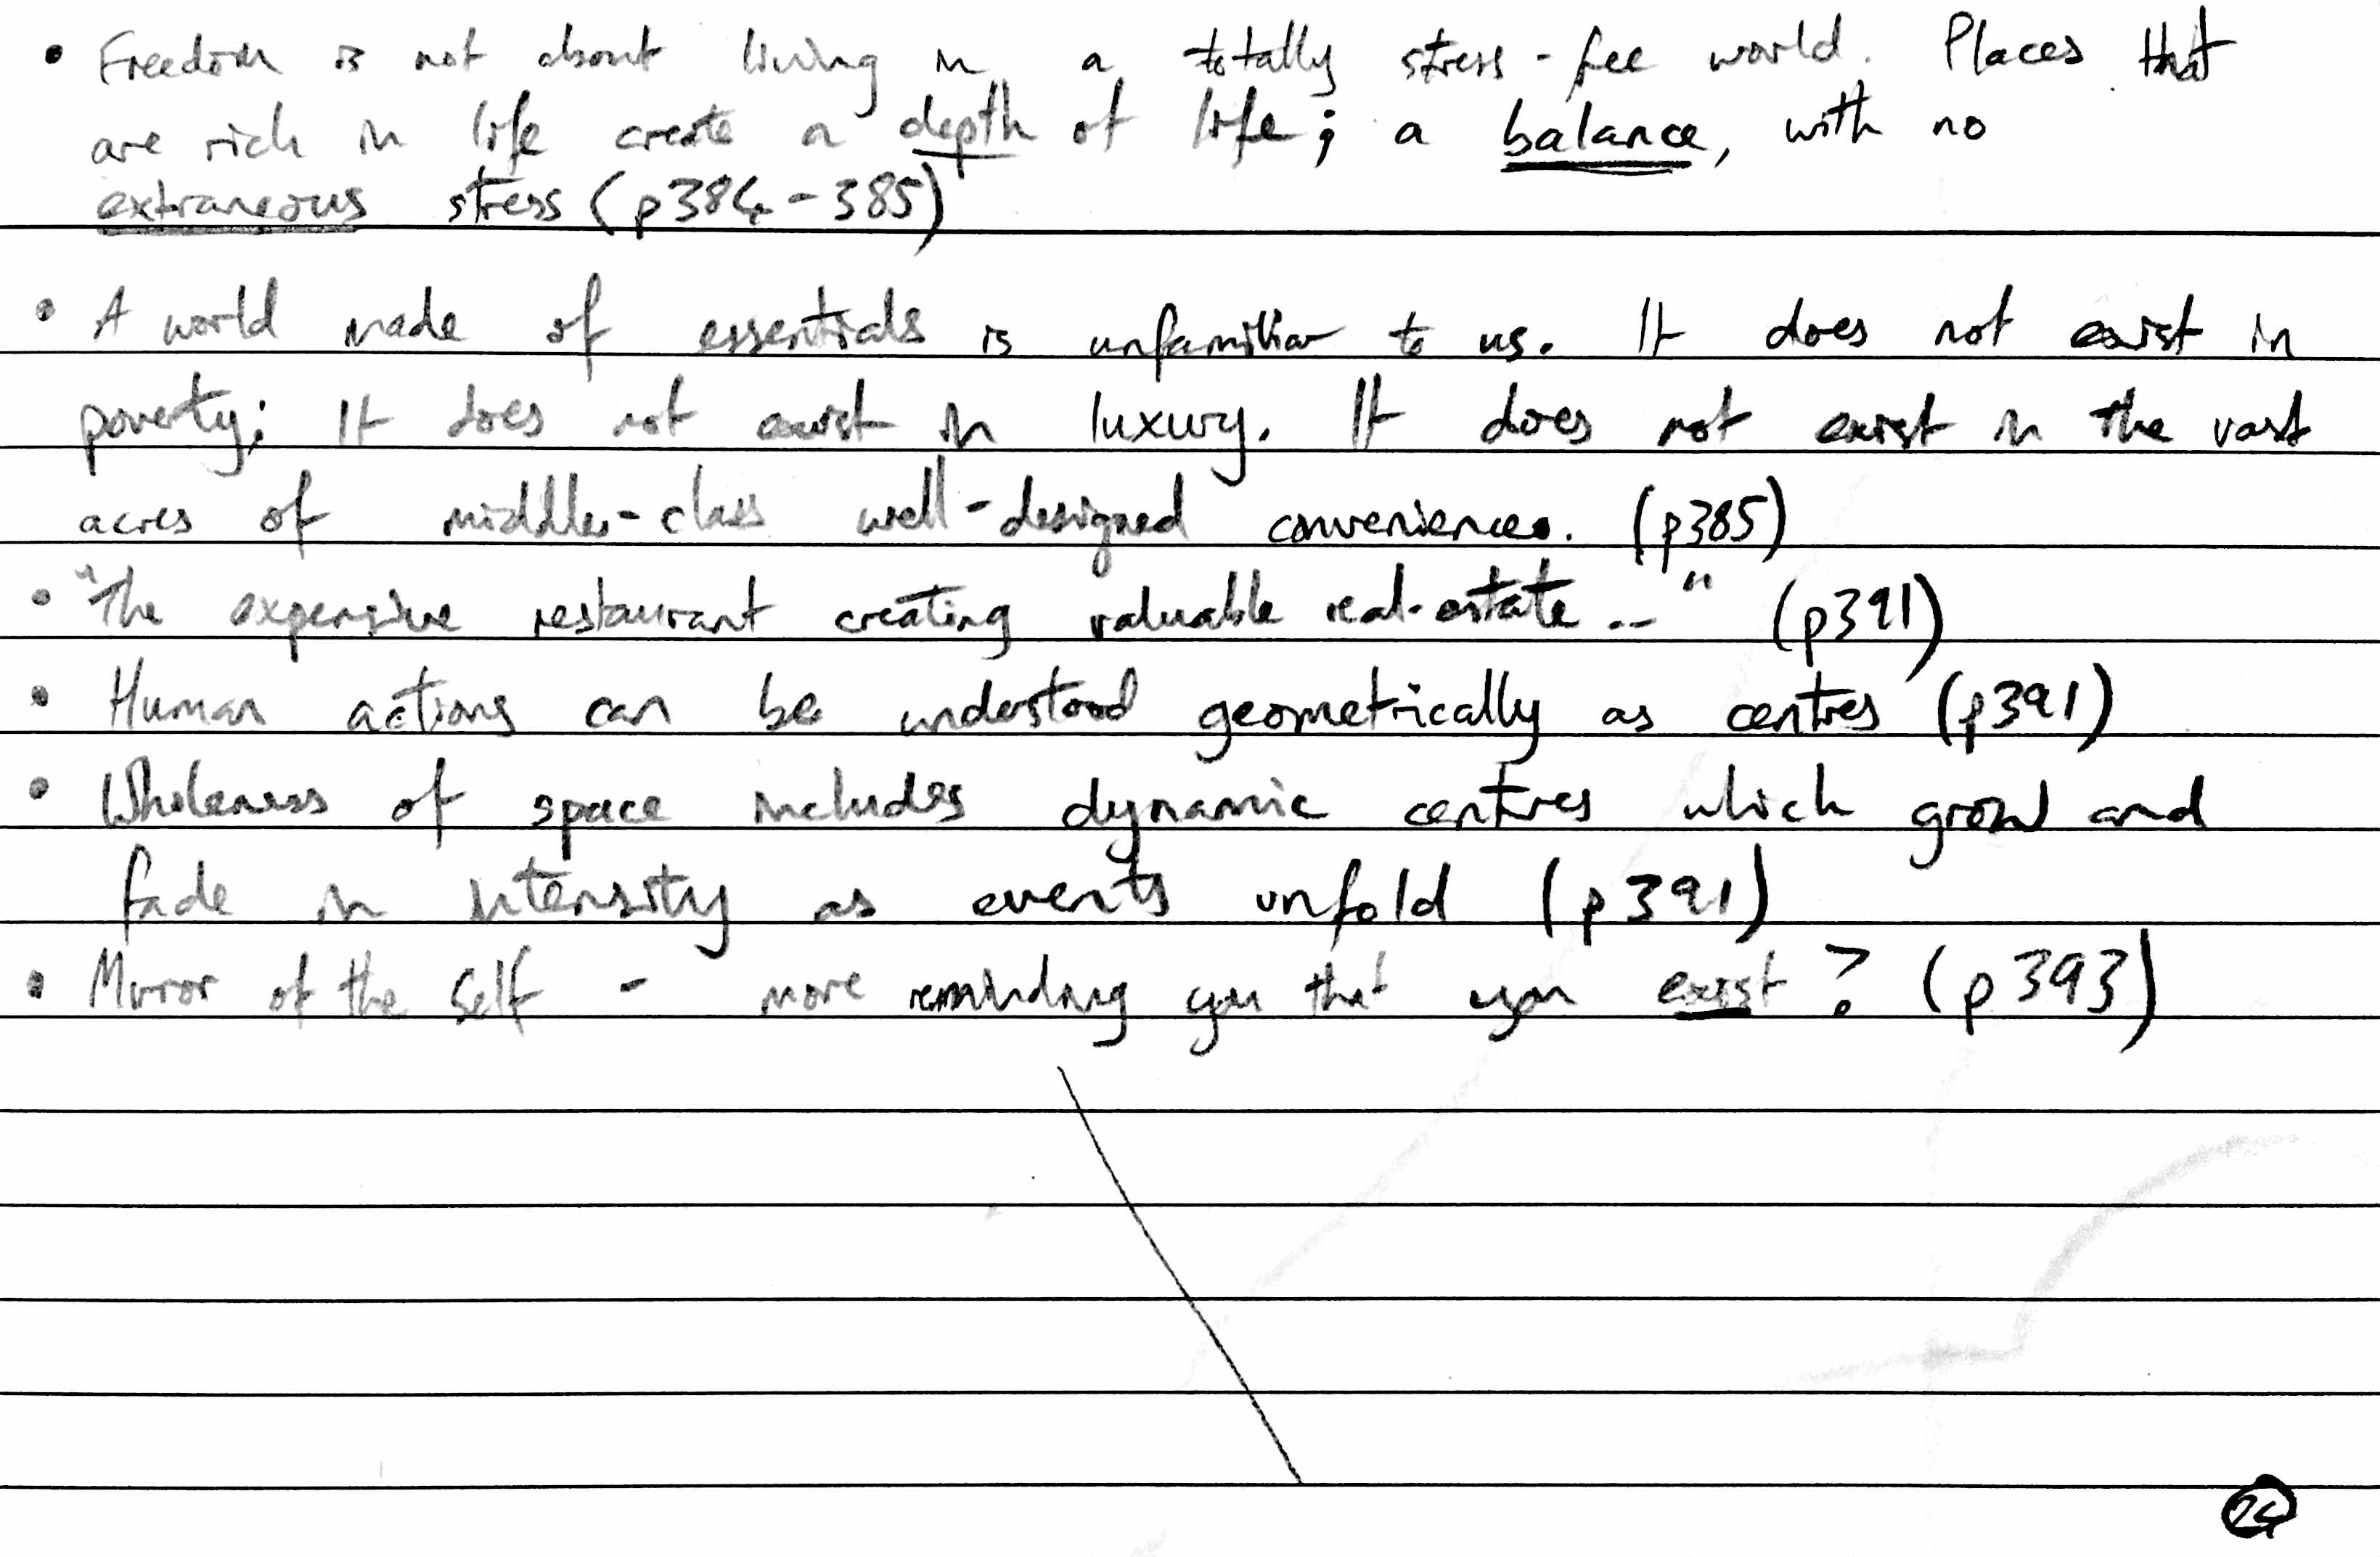 • Freedom is not about living in a totally stress-free world. Places that
are rich in life create a depth of life; a balance, with no
extraneous stress (p384-385)
• A world made of essentials is unfamiliar to us. It does not exist in
poverty; It does not exist in luxury. It does not exist in the vast
acres of middle-class well-designed conveniences. (p385)
• "The expensive restaurant creating valuable real-estate .." (p391)
• Human actions can be understood geometrically as centres (p391)
• Wholeness of space includes dynamic centres which grow and
fade in intensity as events unfold (p391)
• Mirror of the Self - more reminding you that you exist? (p393)
24